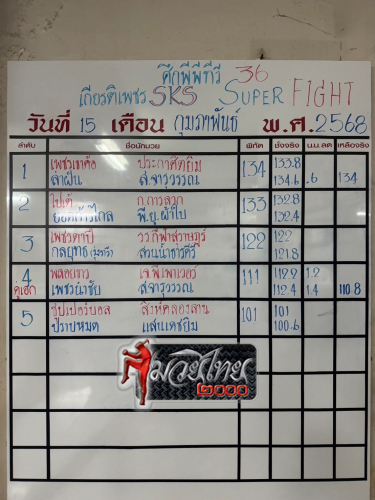 ศึกพีพีทีวี 36
เกียรติเพชร SKS SUPER FIGHT
วันที่ 15 เดือน กุมภาพันธ์ พ.ศ.2568
ลำดับ ชื่อนักมวย พิกัด ชั่งจริง น.น.ลด เหลือจริง
1 เพชรเขาค้อ ประกาศิตยิม 134 133.8
ลำฝัน ส.จารุวรรณ 134.6 .6 134
2 ก.การลวก 133 132.8
พี.ยู.ผ้าใบ 132.4
3 เพชรตาปี วว.กีฬาสุราษฎร์ 122 122
กลยุทธ สวนน้ำธารคีรี 121.8
4 พลอยขาว เจ.พี.เพาเวอร์ 111 112.2 1.2
คู่เอก เพชรนำชัย ส.จารุวรรณ 112.4 1.4 110.8
5 ซุปเปอร์บอล สิงห์คลองลาน 101 101
ปีราบหมด แสนเดชยิม 100.6
มวยไทย
๒๐๐๐